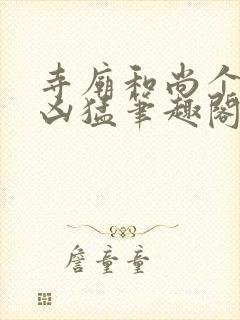 寺庙和尚个
凶猛笔趣阁
詹童童